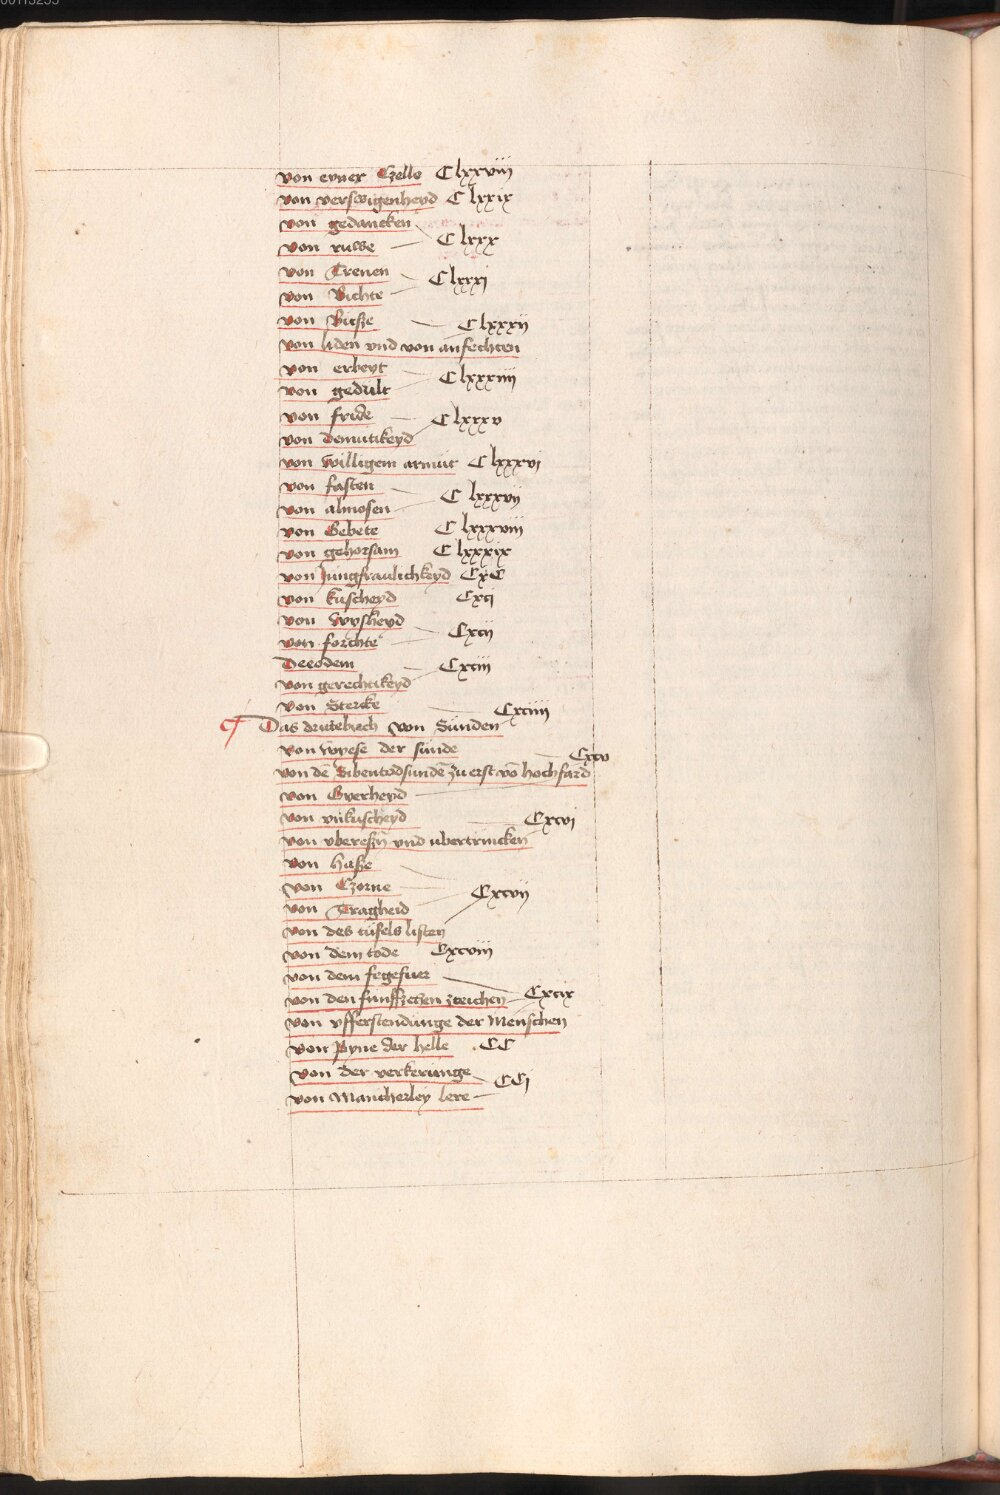 von eyner Czelle C lxxviij
von verswigenheyd C lxxix
von gedancken
von ruwe C lxxx
von Trenen
von Bichte C lxxxj
von Busße C lxxxij
von liden vnd von anfechten
von erbeyt
von gedult C lxxxiiij
von fride C lxxxv
von demutikeyd
von willigem armut C lxxxvj
von fasten
von almosen C lxxxvij
von Gebete C lxxxviij
von gehorsam C lxxxix
von Jungfraulichkeyd CxC
von kuscheyd Cxcj
von wyßheyd
von forchte Cxcij
Deeodem Cxciij
von gerechtikeyd
von Stercke Cxciiij
Das drittebuch von Sunden
von wyese der sunde Cxcv
von dē Sibentodsundē zu erst vō hochfard
von Gyerheyd
von vnkuscheyd Cxcvj
von vbereßn vnd ubertrincken
von haße
von Czorne
von Tragheid Cxcvij
von des tüfels listen
von dem tode Cxcviij
von dem fegefuer
von den funffzehen zeichen Cxcix
von vfferstendunge der Menschen
von Pyne der helle CC
von der verkerunge CCj
von Mancherley lere